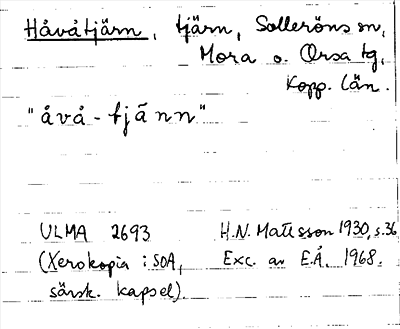 Håvåtjärn, tjärn, Solleröns sn,
Mora o. Orsa tg,
Kopp. län.
"åvå-tjänn"
ULMA 2693 H.N. Mattsson 1930, s.36
(Xerokopia i SOA, Exc. av E.Å. 1968.
särsk. kapsel).